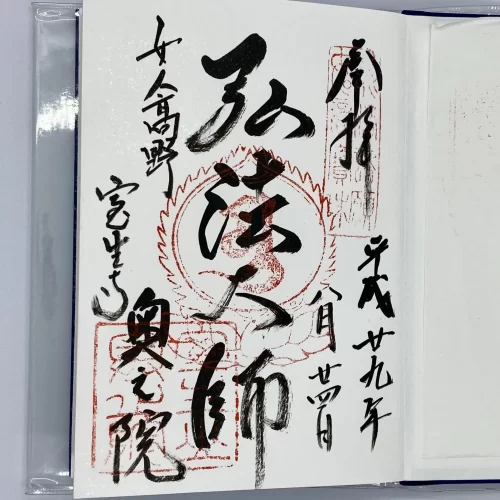 奉拝
平成廿九年
八月廿四日
弘法大師
女人高野
室生寺
奥之院